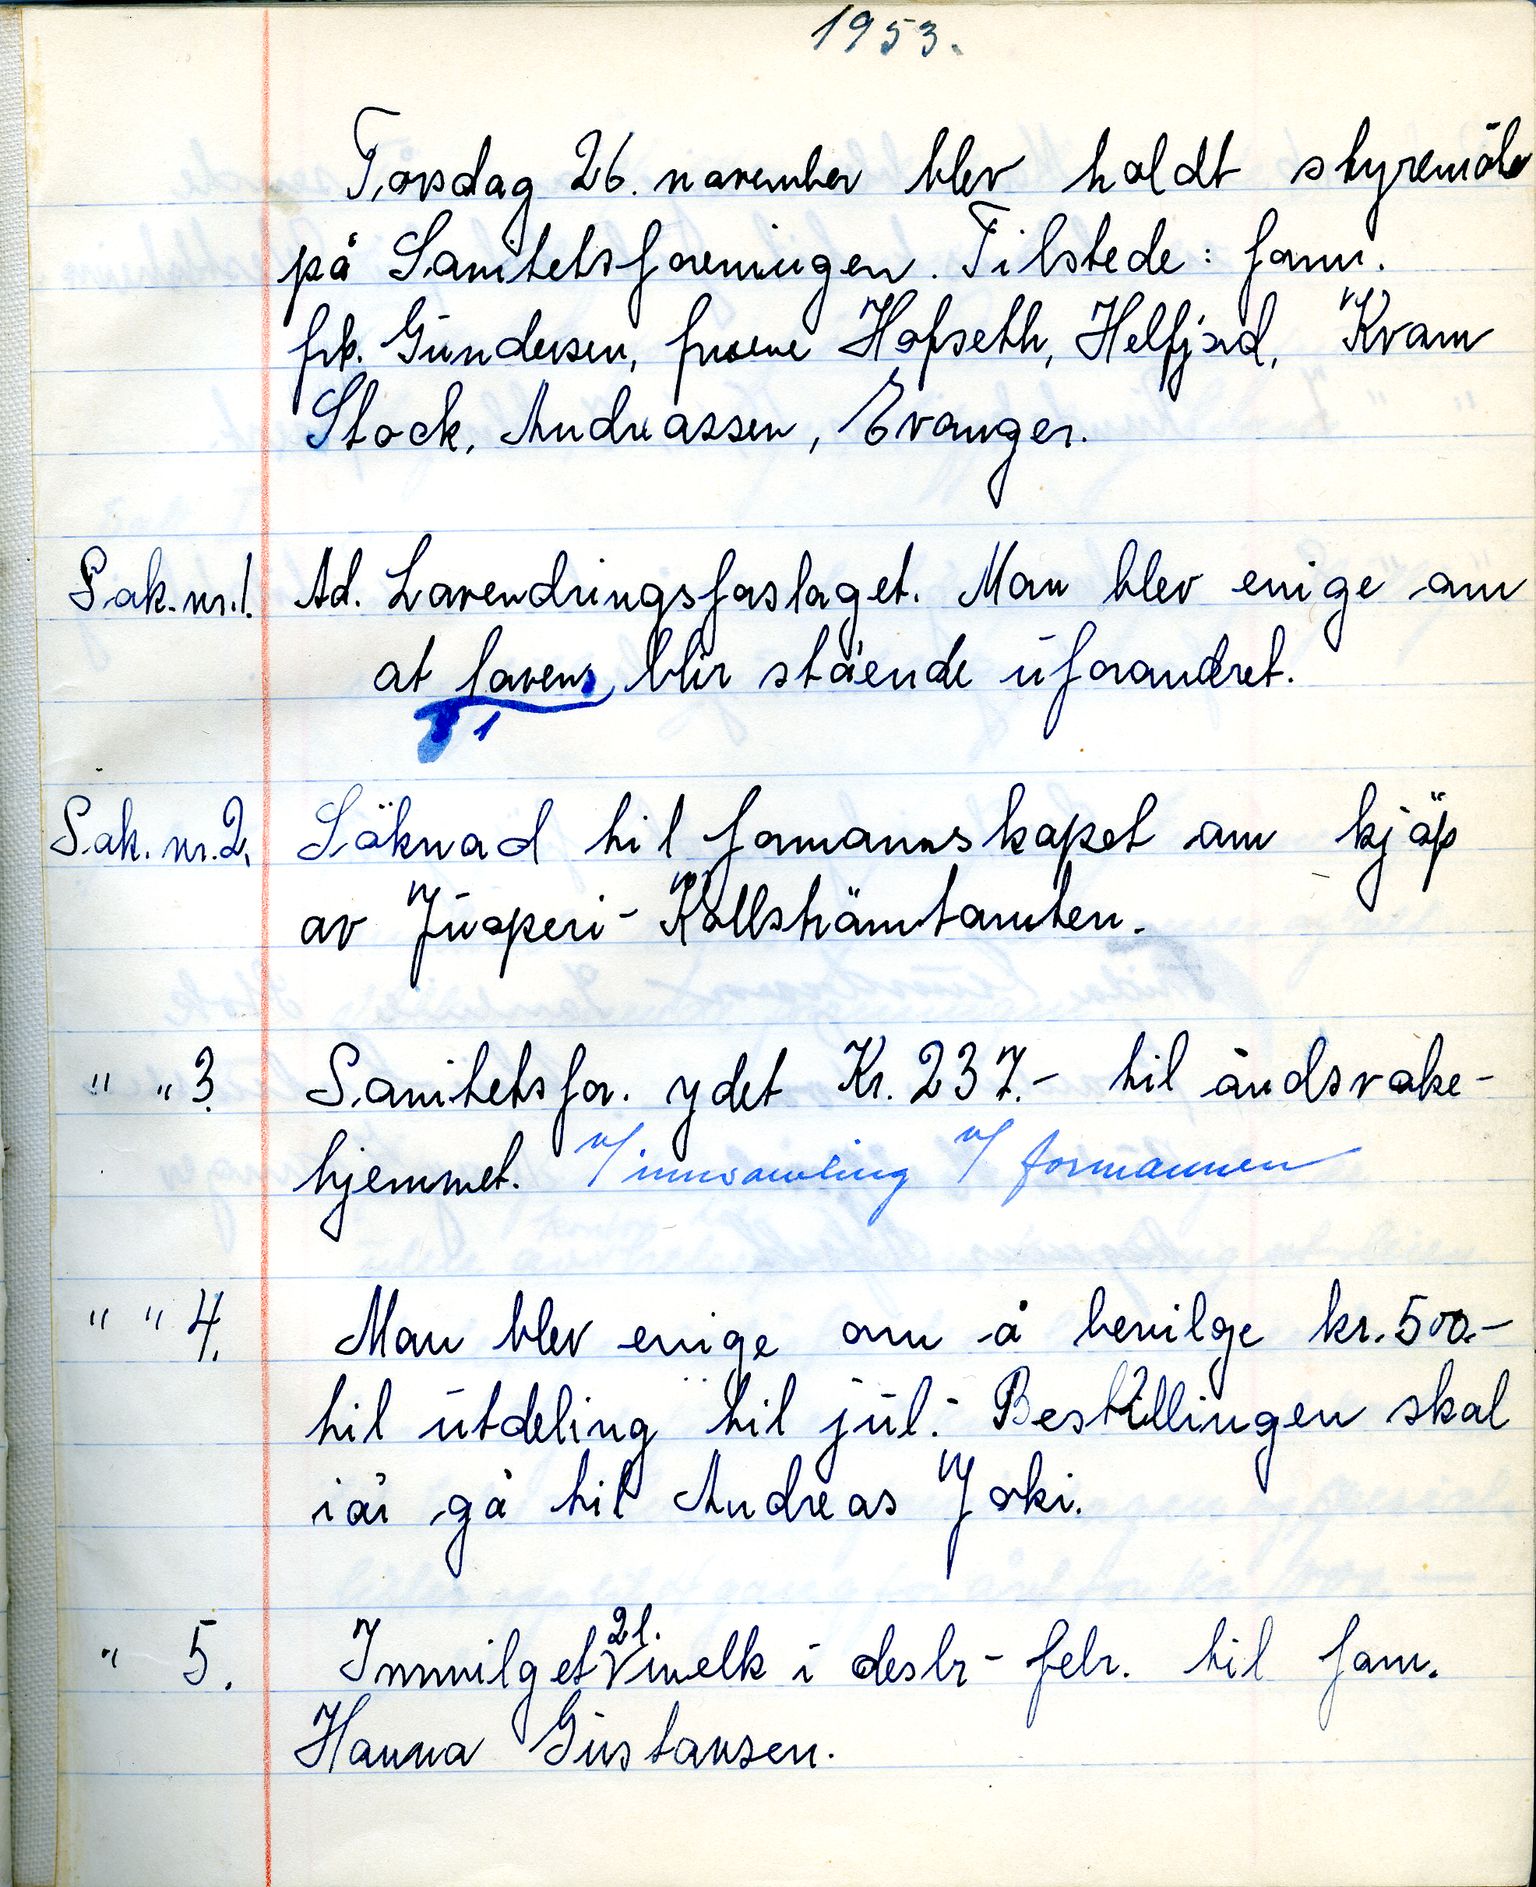 1953.
Torsdag 26. november blev holdt styremöte
på Sanitetsforeningen. Tilstede: form.
frk. Gundersen, fruene Hofseth, Helfjord, Kvam
Stock, Andreassen, Evanger.
Sak. nr. 1. Ad. Lovendringsforslaget. Man blev enige om
at lovens blir stående uforandret.
§ 1
Sak. nr. 2. Söknad til formannskapet om kjöp
av Juoperi - Kollströmtomten.
" " 3. Sanitetsfor. ydet Kr. 237.- til åndsvake-
hjemmet. v/innsamling v/ formannen
" " 4. Man blev enige om å bevilge kr. 500.-
til utdeling til jul. - Bestillingen skal
iår gå til Andreas Joki.
" 5. Innvilget 2 l. melk i desbr - febr. til fam.
Hanna Gustavsen.